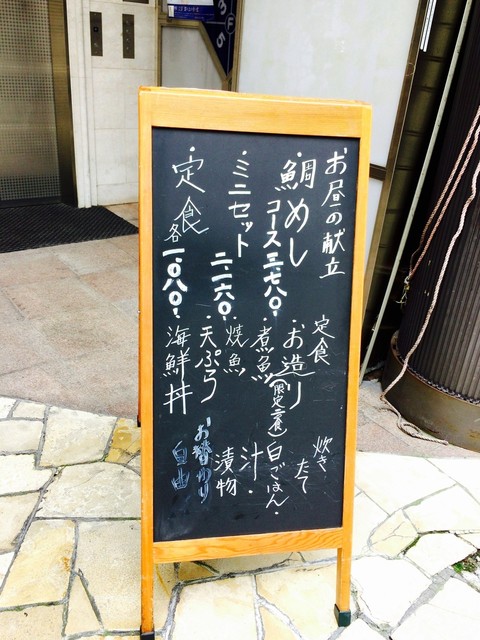 お昼の献立
・鯛めし
コース三、七八〇・
・ミニセット
二、一六〇・
・定食
各一、〇八〇・
定食
・お造り
・煮魚
・焼魚
・天ぷら
海鮮丼
炊きたて
白ごはん・
汁・
漬物
お替わり
自由